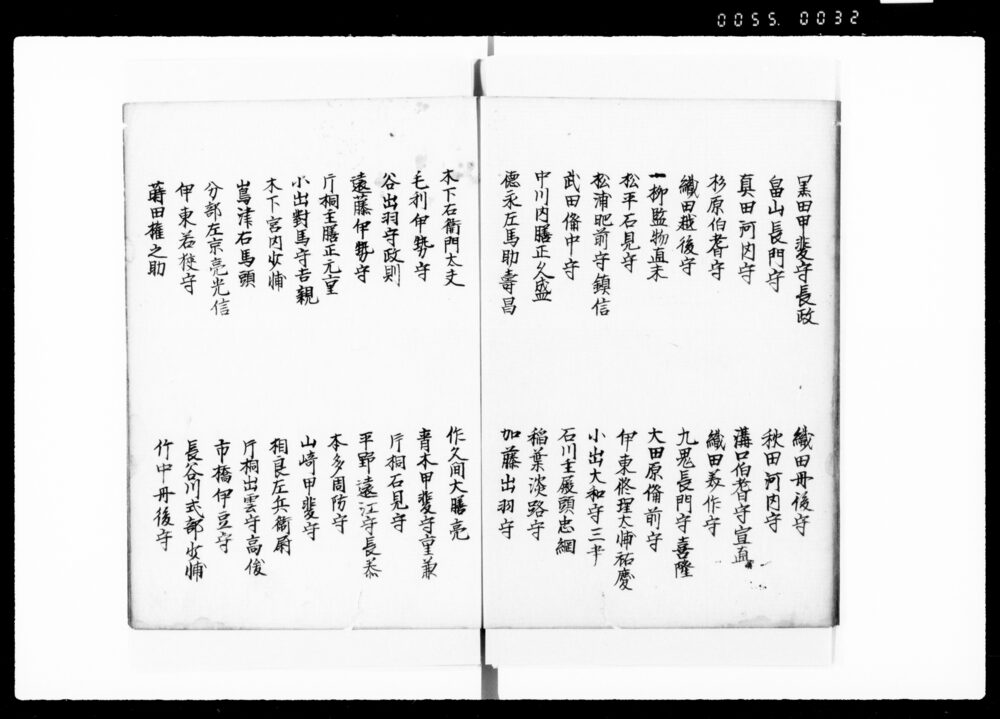 0055.0032
黒田甲斐守長政
畠山長門守
真田河内守
杉原伯耆守
織田越後守
一柳監物直末
松平石見守
松浦肥前守鎮信
武田備中守
中川内膳正久盛
徳永左馬助壽昌
織田丹後守
秋田河内守
溝口伯耆守宣直
織田美作守
九鬼長門守喜隆
大田原備前守
伊東修理太夫祐慶
小出大和守三半
石川主殿頭忠綱
稲葉淡路守
加藤出羽守
木下右衛門太夫
毛利伊勢守
谷出羽守政則
遠藤伊勢守
片桐主膳正元重
小出對馬守吉親
木下宮内少輔
嶌津右馬頭
分部左京亮光信
伊東若狭守
蒔田権之助
作久间大膳亮
青木甲斐守重兼
片桐石見守
平野遠江守長泰
本多周防守
山崎甲斐守
相良左兵衛尉
片桐出雲守高俊
市橋伊豆守
長谷川式部少輔
竹中丹後守